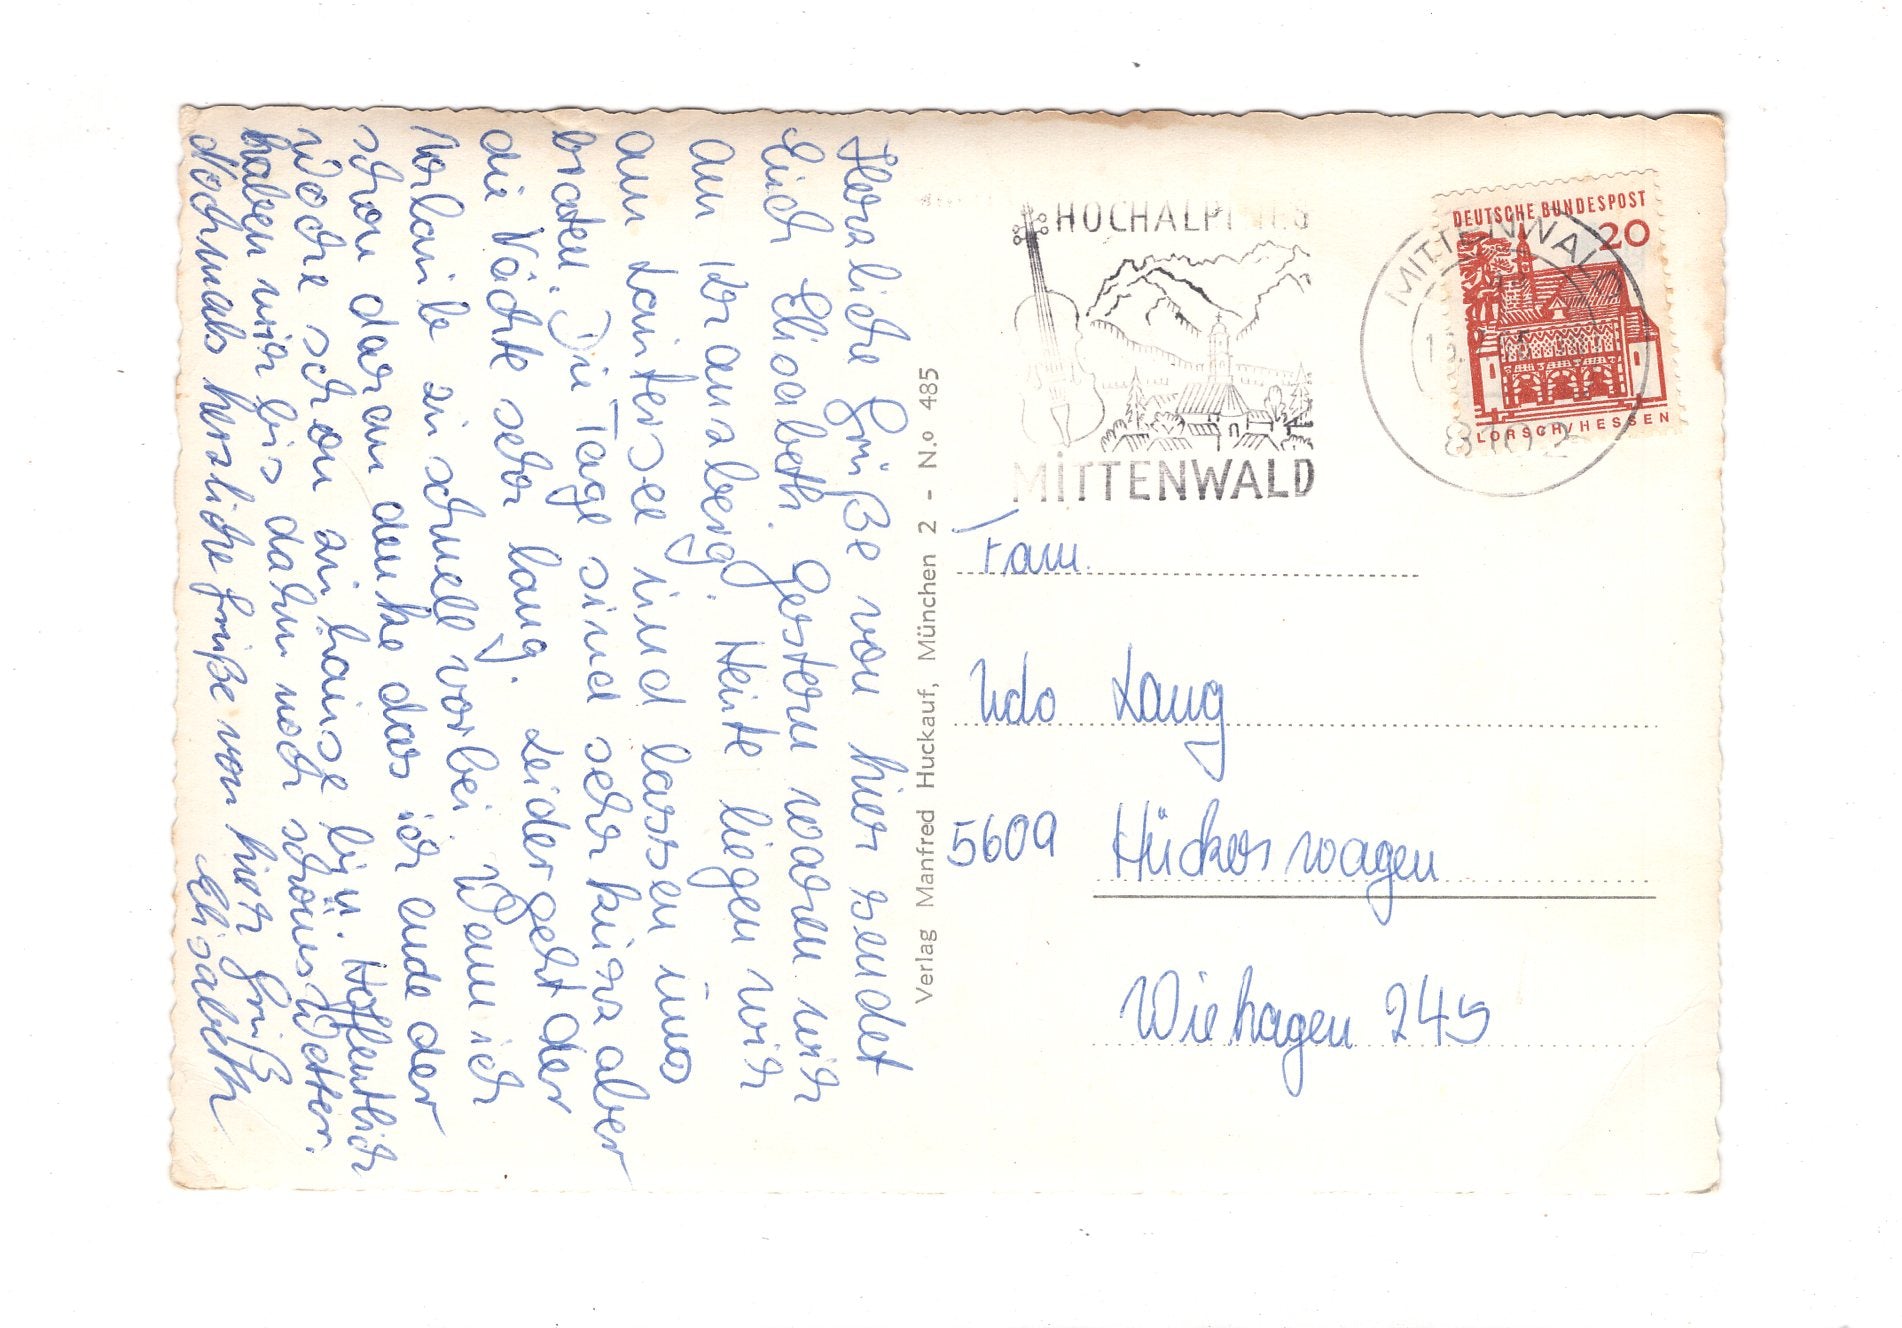 Herzliche Grüße von hier sendet
Euch Elisabeth. Gestern waren wir
am Kranzberg. Heute liegen wir
am Lautersee und lassen uns
braten. Die Tage sind sehr kurz aber
die Nächte sehr lang. Leider geht der
Urlaub zu schnell vorbei. Wenn ich
schon daran denke das ich ende der
Woche schon zu hause bin. Hoffentlich
haben wir bis dahin noch schönes Wetter.
Nochmals herzliche Grüße von hier Gruß
Elisabeth
Verlag Manfred Huckauf, München 2 - N.o 485
HOCHALPINES
MiTTENWALD
MITTENWALD
8102
DEUTSCHE BUNDESPOST
20
LORSCH/HESSEN
Fam.
Udo Lang
5609 Hückeswagen
Wiehagen 245